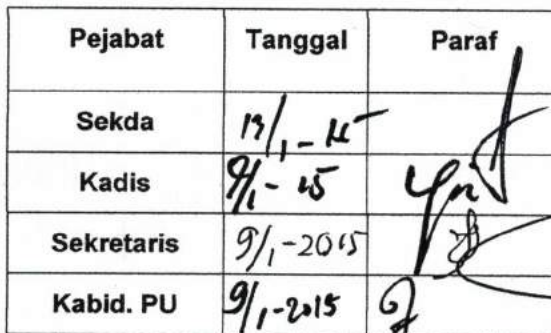 Pejabat Tanggal Paraf
Sekda 13/1-15
Kadis 9/1-15
Sekretaris 9/1-2015
Kabid. PU 9/1-2015